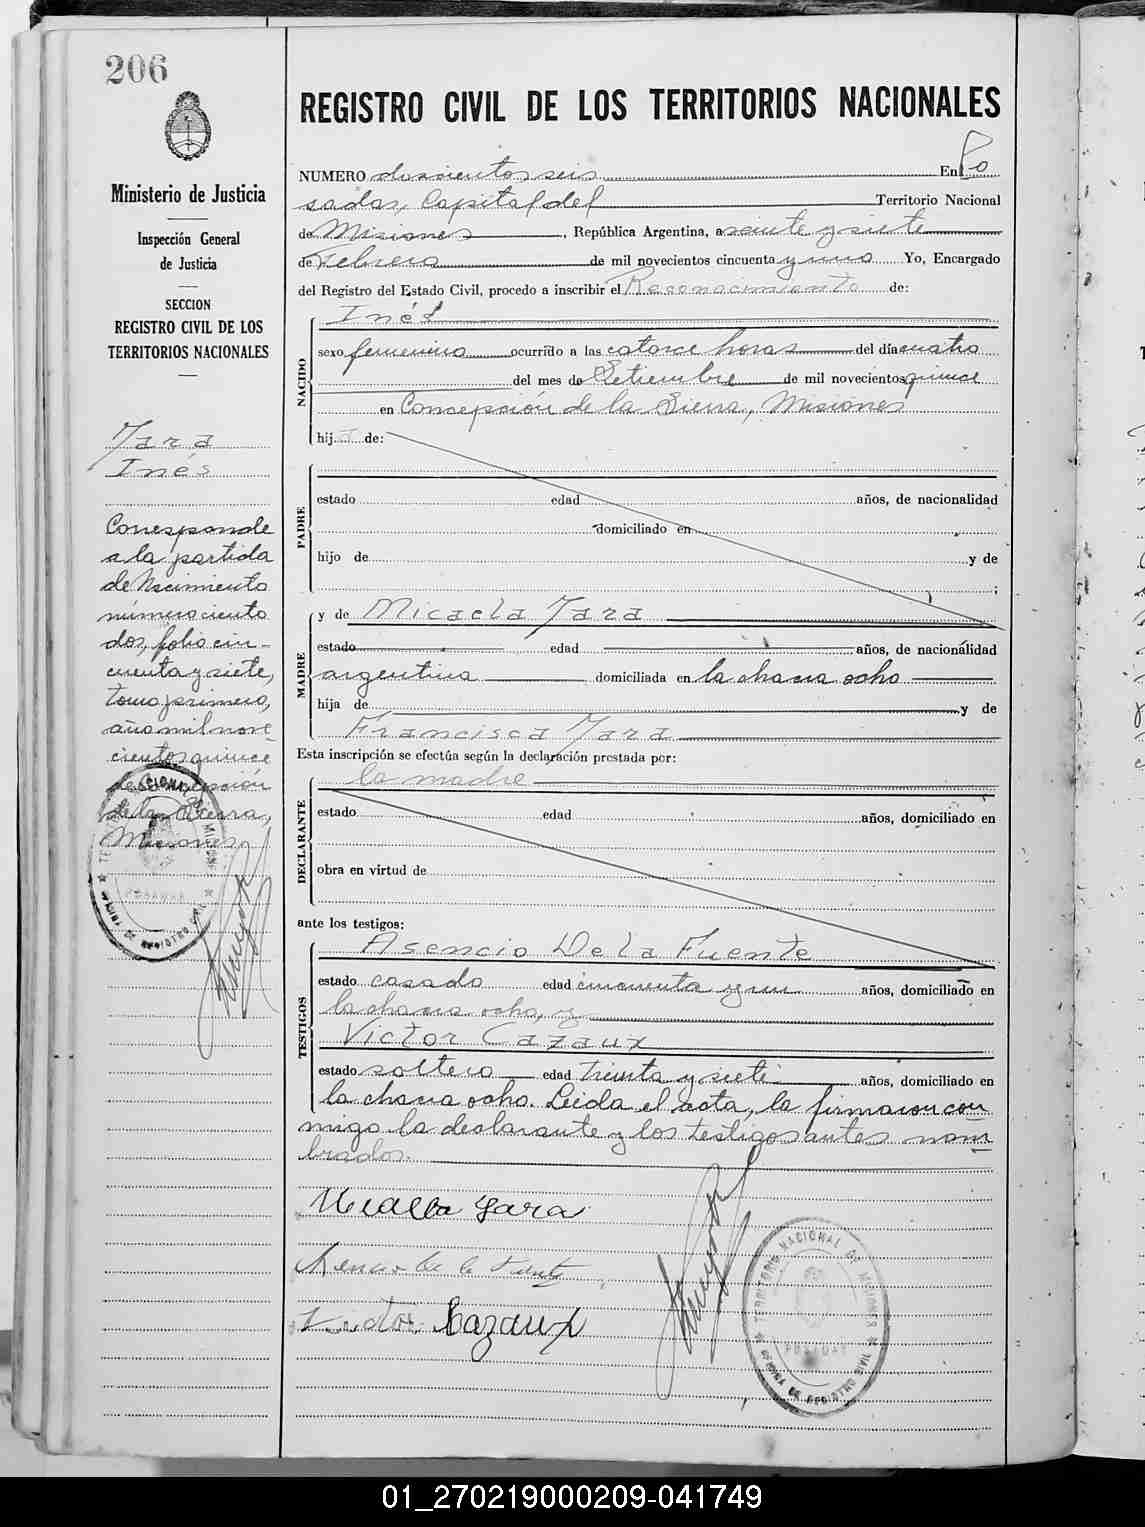 206
Ministerio de Justicia
Inspección General
de Justicia
SECCION
REGISTRO CIVIL DE LOS
TERRITORIOS NACIONALES
Jara
Inés
Corresponde
a la partida
de Nacimiento
número ciento
dos, folio cin-
cuenta y siete,
tomo primero,
año mil nove
cientos quince
de Concepción
de la Sierra,
Misiones.
REGISTRO CIVIL DE LOS TERRITORIOS NACIONALES
NUMERO doscientos seis En Po
sadas, Capital del Territorio Nacional
de Misiones, República Argentina, a veinte y siete
de Febrero de mil novecientos cincuenta y uno Yo, Encargado
del Registro del Estado Civil, procedo a inscribir el Reconocimiento de:
Inés
NACIDO
sexo femenino ocurrido a las catorce horas del día cuatro
del mes de Setiembre de mil novecientos quince
en Concepción de la Sierra, Misiones
hija de:
PADRE
estado edad años, de nacionalidad
domiciliado en
hijo de y de
;
MADRE
y de Micaela Jara
estado edad años, de nacionalidad
argentina domiciliada en la chacra ocho
hija de y de
Francisca Jara
Esta inscripción se efectúa según la declaración prestada por:
la madre
DECLARANTE
estado edad años, domiciliado en
obra en virtud de
ante los testigos:
TESTIGOS
Asencio De la Fuente
estado casado edad cincuenta y un años, domiciliado en
la chacra ocho, y
Victor Cazaux
estado soltero edad treinta y siete años, domiciliado en
la chacra ocho. Leida el acta, la firmaron con
migo la declarante y los testigos antes nom
brados.
Micaela Jara
Asencio de la Fuente
Victor Cazaux
TERRITORIO NACIONAL DE MISIONES
POSADAS
OFICINA DE REGISTRO CIVIL
01_270219000209-041749